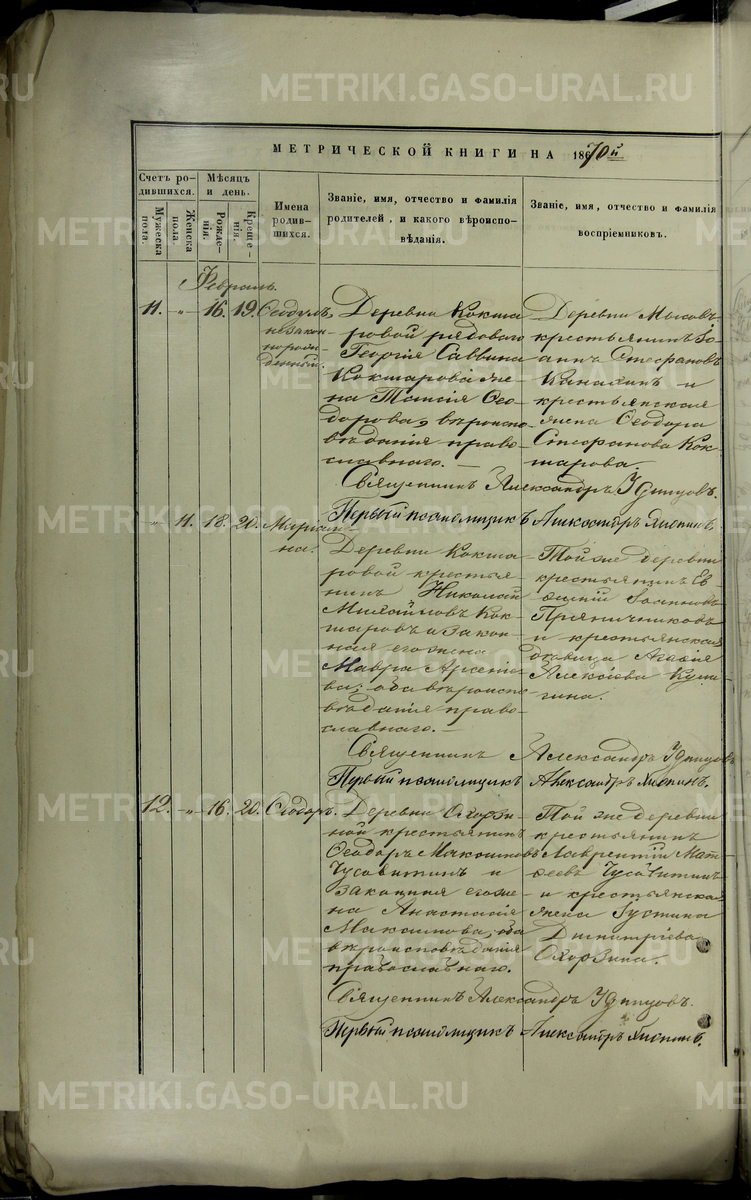 МЕТРИЧЕСКОЙ КНИГИ НА 1870й
Счетъ родившихся.
Мужеска пола.
Женска пола.
Мѣсяцъ и день.
Рожденія.
Крещенія.
Имена родившихся.
Званіе, имя, отчество и фамилія
родителей, и какого вѣроиспо-
вѣданія.
Званіе, имя, отчество и фамилія
воспріемниковъ.
Февраль.
11. " 16. 19. Ѳеодулъ
незакон
норож
денный.
Деревни Кокша
ровой рядоваго
Георгія Саввина
Кокшарова же
на Таисія Ѳео
дорова, вѣроиспо
вѣданія право
славнаго.
Деревни
крестьянинъ Іо
аннъ Стефановъ
и
крестьянская
жена Ѳеодора
Стефанова Кок
шарова.
Священникъ Александръ Удинцовъ.
" 11. 18. 20. Маріам-
на.
Деревни Кокша
ровой крестья
нинъ Николай
Михайловъ Кок
шаровъ и закон
ная его жена
Мавра Арсеніе
ва; оба вѣроиспо
вѣданія право
славнаго.
Той же деревни
крестьянинъ Ев
Іоанновъ
Пряничниковъ
и крестьянская
дѣвица Агафія
Алексіева
Священникъ Александръ Удинцовъ
Александръ
12. " 16. 20. Ѳеодоръ.
Деревни Охорзи
ной крестьянинъ
Ѳеодоръ
Чусовитинъ и
законная его же
на Анастасія
Максимова; оба
вѣроисповѣданія
православнаго.
Той же деревни
крестьянинъ
Лаврентій Мат
ѳеевъ Чусовитинъ
и крестьянская
жена Іустина
Димитріева
Охорзина.
Священникъ Александръ Удинцовъ.
Александръ
METRIKI.GASO-URAL.RU